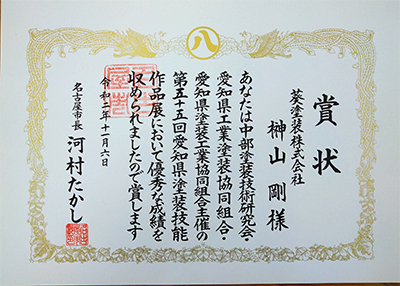 八
賞状
葵塗装株式会社
榊山 剛 様
あなたは中部塗装技術研究会・
愛知県工業塗装協同組合・
愛知県塗装工業協同組合主催の
第五十五回愛知県塗装技能
作品展において優秀な成績を
収められましたので賞します
令和二年十一月六日
名古屋市長 河村たかし